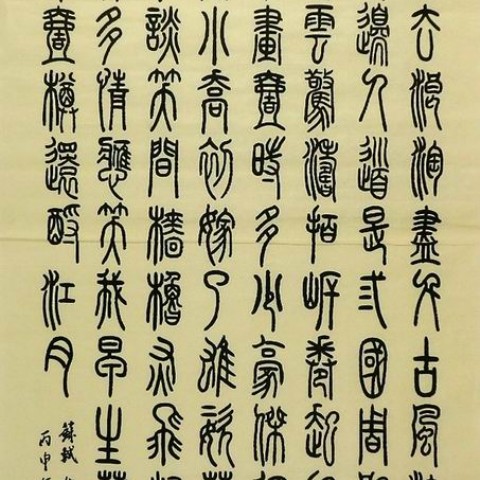 去浪淘盡千古風流
邊人道是弎國周郎
雲驚濤拍岸卷起
畫壹時多少豪傑
小喬初嫁了雄姿英
談笑間檣櫓灰飛煙
多情應笑我早生華
壹樽還酹江月
蘇軾
丙申